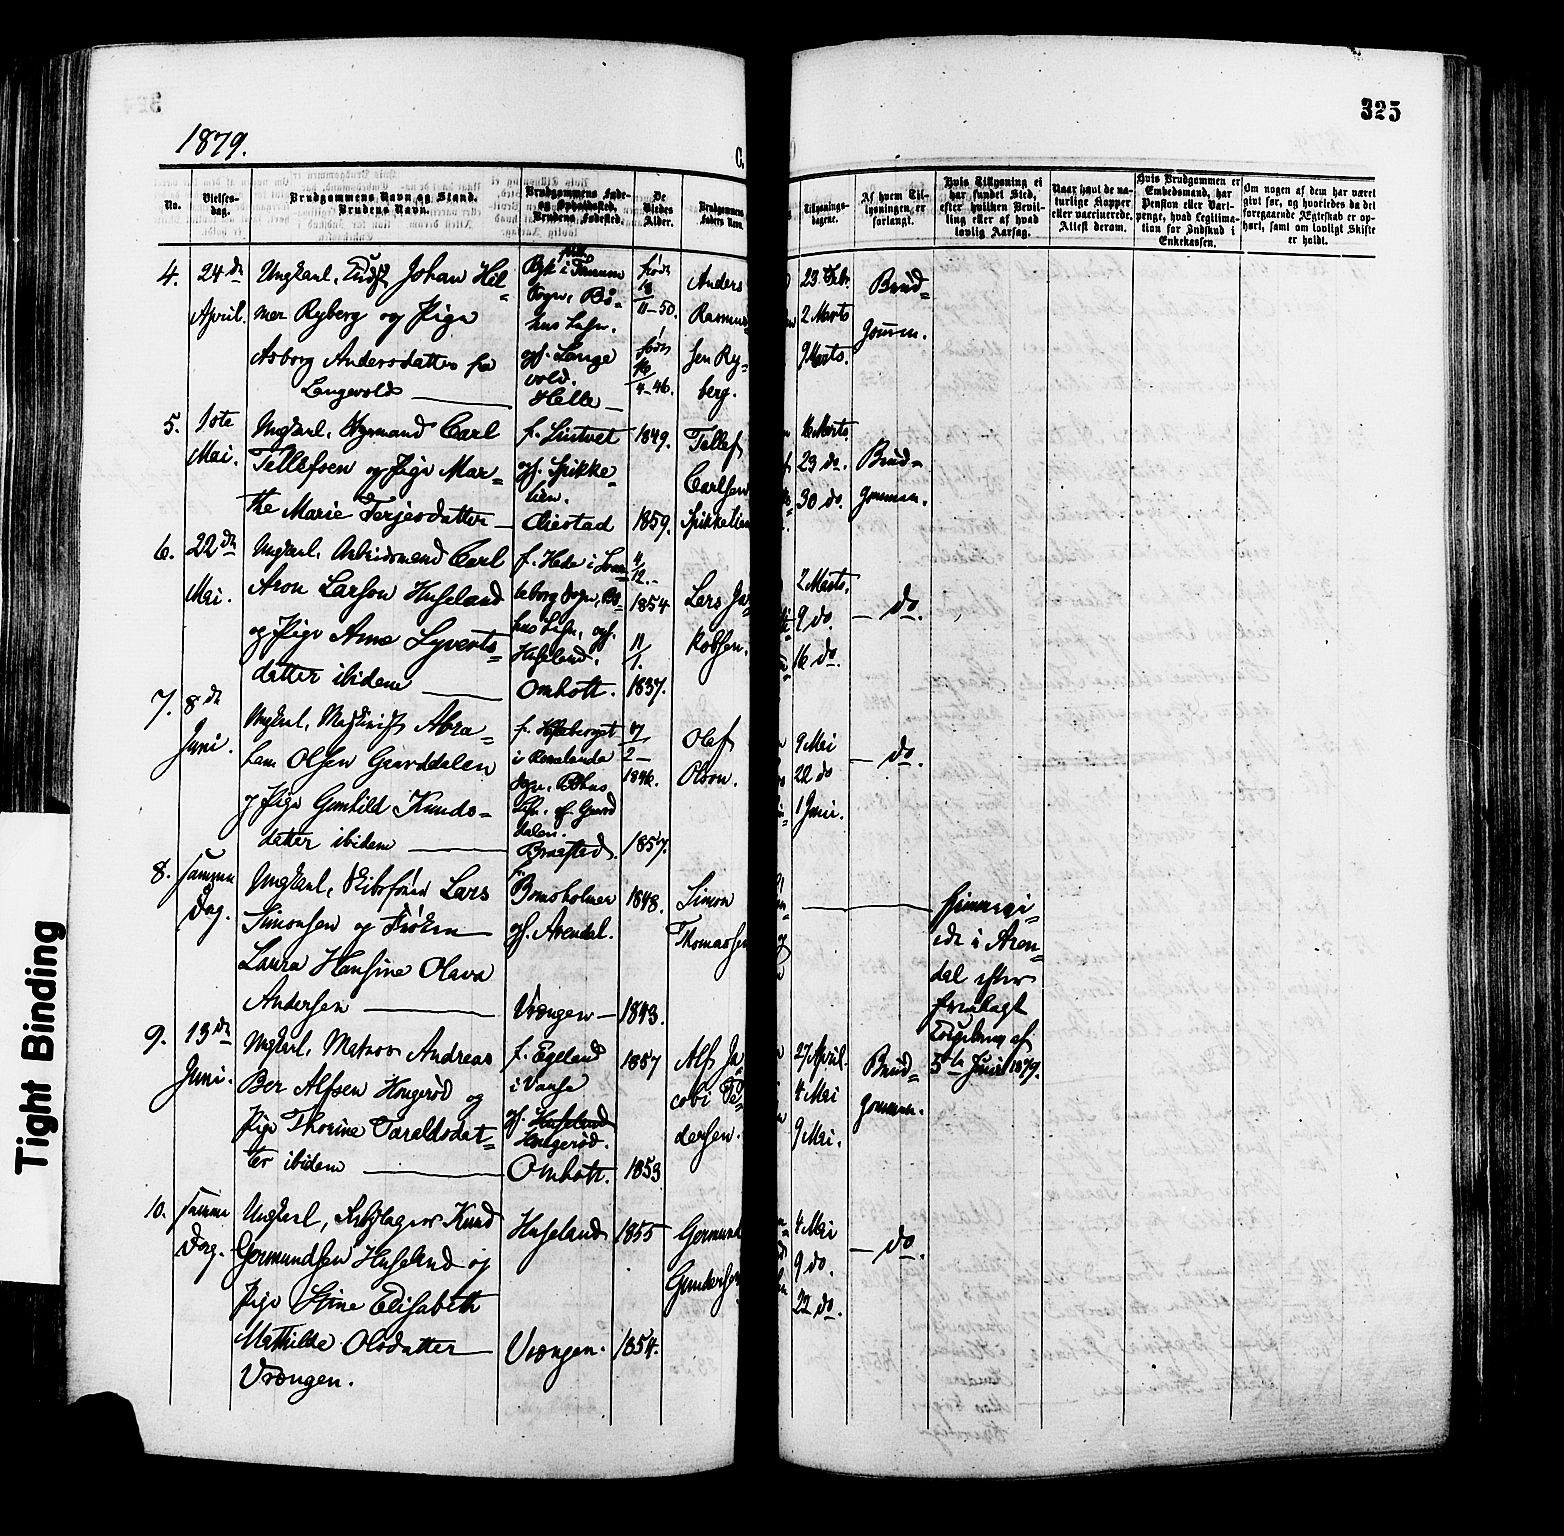 325
1879.
C.
No.
Vielses-
dag.
Brudgommens Navn og Stand.
Brudens Navn.
Brudgommens Føde-
og Opholdssted.
Brudens Fødested.
De
Viedes
Alder.
Brudgommens
Faders Navn.
Tillysnings-
dagene.
Af hvem Til-
lysningen er
forlangt.
Hvis Tillysning ei
har fundet Sted,
efter hvilken Bevil-
ling eller af hvad
lovlig Aarsag.
Naar havt de na-
turlige Kopper
eller vaccinerede.
Attest derom.
Hvis Brudgommen er
Embedsmand, har
Pension eller Vart-
penge, hvad Legitima-
tion for Indskud i
Enkekassen.
Om nogen af dem har været
givt før, og hvorledes da det
foregaaende Ægteskab er op-
hørt, samt om lovligt Skifte
er holdt.
4.
24de
April.
Ungkarl, Johan Hil-
mer Ryberg og Pige
Asborg Andersdatter fra
Langevold
Sogn, Bå-
hus Lehn.
opf. Lange
vold.
Helle
født
18/11-50.
født
4-46.
Anders
Rasmus-
sen Ry-
berg.
23 Feb.
2 Marts
9 Marts.
Brud-
gommen.
5.
1ste
Mai.
Ungkarl, Styrmand Carl
Tellefsen og Pige Mar-
the Marie Terjesdatter
f. Lintvet
opf. Spikke-
lien.
1849.
1859.
Tellef
Carlsen
Spikkelien
16 Marts
23 do.
30 do.
Brud-
gommen.
6.
22de
Mai.
Ungkarl, Arbeidsmand Carl
Aron Larsen Huseland
og Pige Anne Syverts-
datter ibidem
f. Hede i
Sogn, Bå-
hus Lehn, opf.
Huseland.
Omholt.
11/12.
1854
11/1.
1837.
Lars Ja-
kobsen.
2 Marts.
9 do.
16 do.
do.
7.
8de
Juni.
Ungkarl, Abra-
ham Olsen Gaarddalen
og Pige Gunhild Knuds-
datter ibidem
Sogn, Båhus
Lehn. opf. Gaard
dalen.
Braastad.
7/2
1846.
1857.
Olaf
Olson.
9 Mai
22 do
1 Juni.
do.
8.
samme
Dag.
Ungkarl, Skibsfører Lars
Simonsen og Frøken
Laura Hansine Olava
Andersen
Bomsholmen
opf. Arendal.
Vrængen
1848.
1843.
Simon
Thomassen
i Aren-
dal efter
fremlagt
af
5te Juni 1879.
9.
13de
Juni.
Ungkarl, Matros Andreas
Ber Alfsen Hougerød og
Pige Thorine Taraldsdat-
ter ibidem
f. Egeland
i Vanse
opf. Huseland
Hougerød.
Omholt.
1857
1853
Alf Ja-
cobi Pe-
dersen.
27 April.
4 Mai
9 Mai.
Brud-
gommen.
10.
samme
Dag.
Ungkarl, Knud
Gormundsen Huseland og
Pige Stine Elisabeth
Mathilde Olsdatter
Vrængen.
Huseland
Vrængen.
1855
1854.
Gormund
Gundersen
4 Mai
9 do.
22 do.
do.
Tight Binding